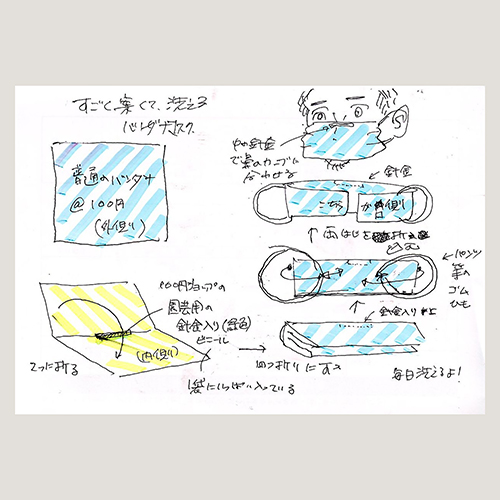 すごく楽しくて、洗える
バンダナマスク
普通のバンダナ
@100円
(外側)
中の針金
で鼻のカーブに
合わせる
針金
こちら
が口側
↑両はじを
パンツ
等の
ゴム
ひも
100円ショップの
園芸用の
針金入り(緑色)
ビニール
(内側)
2つに折る
1袋にいっぱい入っている
→
四つ折りにする
↑針金入り
毎日洗えるよ!